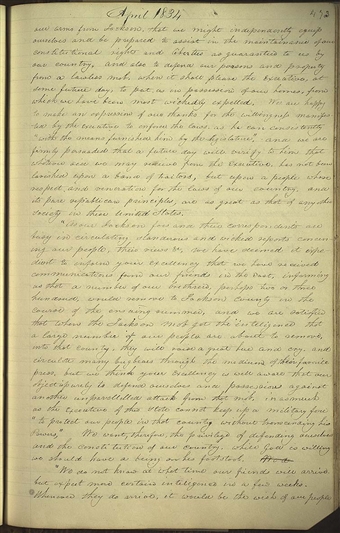 April 1834
473
our arms from Jackson, that we might independently equip
ourselves and be prepared to assist in the maintainance of our
constitutional rights and liberties as guaranteed to us by
our country, and also to defend our persons and property
from a lawless mob, when it shall please the Executive, at
some future day, to put us in possession of our homes, from
which we have been most wickedly expelled. We are happy
to make an expression of our thanks for the willingness manifes
ted by the executive to enforce the laws, as he can consistently
"with the means furnished him by the legislature," and we are
firmly persuaded that a future day will verify to him, that
whatever aid we may receive from the Executive, has not been
lavished upon a band of traitors, but upon a people whose
respect and veneration for the laws of our country, and
its pure republican principles, are as great as that of any other
society in these United States.
"As our Jackson foes and their correspondents are
busy in circulating slanderous and wicked reports concern-
ing our people, their views &c, we have deemed it expe
dient to inform your excellency that we have received
communications from our friends in the East, informing
us that a number of our brethren, perhaps two or three
hundred, would remove to Jackson County in the
course of the ensuing summer, and we are satisfied
that when the Jackson mob get the intelligence that
a large number of our people are about to remove
into that county, they will raise a great hue and cry, and
circulate many bugbears through the medium of their favorite
press, but we think your excellency is well aware that our
object is purely to defend ourselves and possessions against
another unparallelled attack from that mob, inasmuch
as the Executive of this state cannot keep up a military force
"to protect our people in that county without transcending his
Powers." We want, therefore, the privilege of defending ourselves
and the constitution of our country, while God is willing
we should have a being on his footstool.
"We do not know at what time our friends will arrive,
but expect more certain intelligence in a few weeks.
Whenever they do arrive, it would be the wish of our people